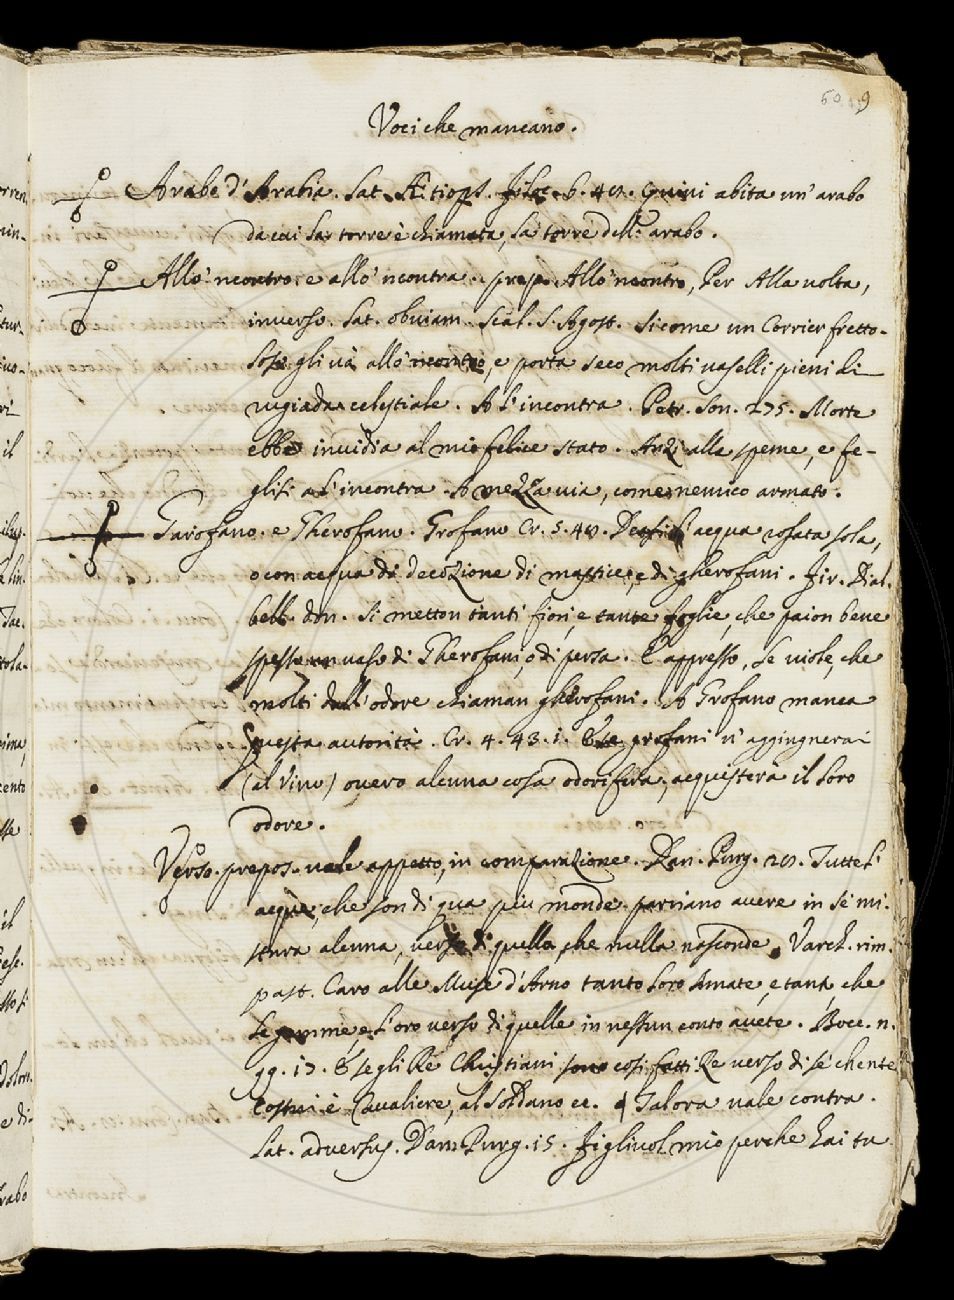 Voci che mancano.
Arabo d'Arabia. Lat. Æthiops. b. 40. Quivi abita un' arabo
da cui la torre è chiamata, la torre dell' arabo.
All' incontro. e all' incontra. prep. All' incontro, Per Alla volta,
inverso. Lat. obviam. Scal. S. Agost. Sicome un Corrier fretto-
loso gli và all' incontro, e porta seco molti vaselli pieni di
rugiada celestiale. A l'incontra. Petr. Son. 275. Morte
ebbe invidia al mio felice stato. Anzi alla speme, e fe-
glisi a l'incontra. A mezza via, come nemico armato.
Garofano. e Gherofano. Grofano Cr. 5. 48. acqua rosata sola,
o con acqua di decozione di mastice, e di gherofani. Fir. Dial.
bell. don. Si metton tanti fiori, e tante foglie, che paion bene
spesso un vaso di Gherofani, o di persa. E appresso, Le viole, che
molti dall' odore chiaman gherofani. A Grofano manca
questa autorità. Cr. 4. 43. 1. E se grofani v' aggingnerai
(al Vino) overo alcuna cosa odorifera, acquisterà il loro
odore.
Verso. prepos. vale appetto, in comparazione. Dan. Purg. 28. Tutte l'
acque, che son di qua più monde. parriano avere in sè mi-
stura alcuna, verso di quella, che nulla nasconde. Varch. rim.
past. Caro alle Muse d'Arno tanto loro Amate, e tant, che
Le gemme, e l'oro verso di quelle in nessun conto avete. Bocc. n.
99. 13. E se gli Re Christiani sono così fatti Re verso di sè chente
Costui è Cavaliere, al Soldano ec. ¶ Talora vale contra.
Lat. adversus. Dan. Purg. 15. Figliuol mio perche hai tu